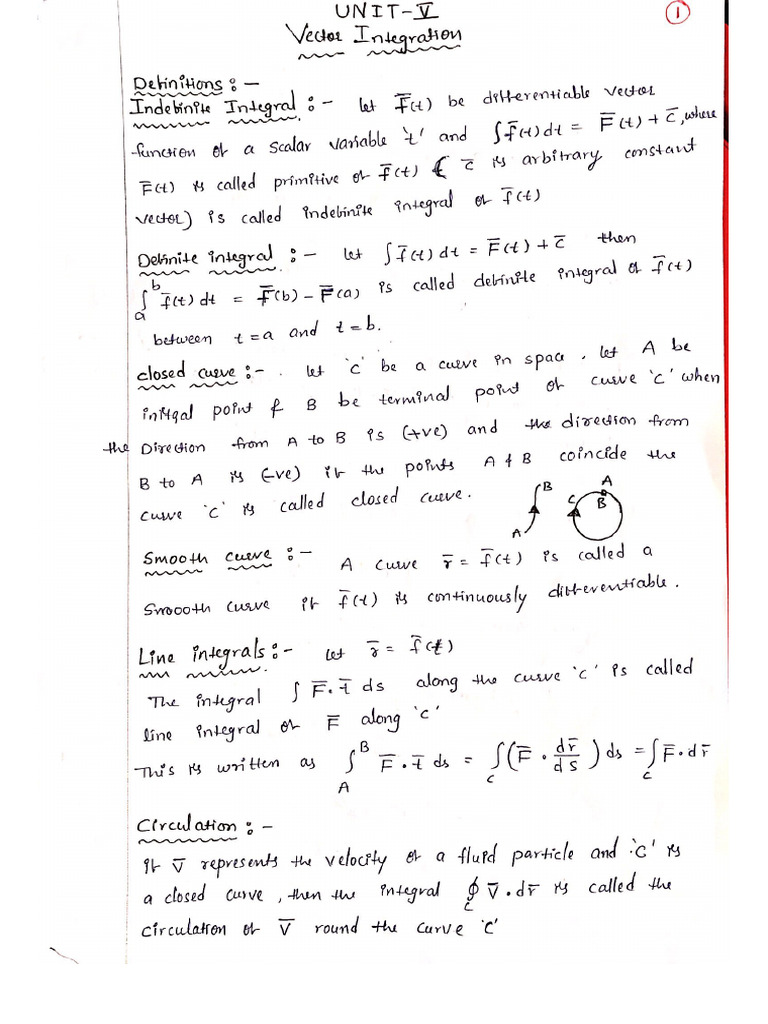 UNIT-V
①
Vector Integration
Definitions:-
Indefinite Integral:- let f̄(t) be differentiable vector
function of a scalar variable 't' and ∫f̄(t)dt = F̄(t)+c̄, where
F̄(t) is called primitive of f̄(t) ( c̄ is arbitrary constant
vector) is called indefinite integral of f̄(t)
Definite integral:- let ∫f̄(t)dt = F̄(t)+c̄ then
∫ₐᵇ f̄(t)dt = F̄(b)-F̄(a) is called definite integral of f̄(t)
between t=a and t=b.
closed curve:-. let 'c' be a curve in space. let A be
initial point & B be terminal point of curve 'c' when
the Direction from A to B is (+ve) and the direction from
B to A is (-ve) if the points A & B coincide the
curve 'c' is called closed curve.
B
A
A
B
C
Smooth curve:- A curve r̄ = f̄(t) is called a
Smooth curve if f̄(t) is continuously differentiable.
Line integrals:- let r̄ = f̄(t)
The integral ∫ F̄.t̄ ds along the curve 'c' is called
line integral of F̄ along 'c'
This is written as ∫_A^B F̄.t̄ ds = ∫_c (F̄ . dr̄/ds) ds = ∫_c F̄.dr̄
Circulation:-
if V̄ represents the velocity of a fluid particle and 'C' is
a closed curve, then the integral ∮_c V̄.dr̄ is called the
circulation of V̄ round the curve 'C'